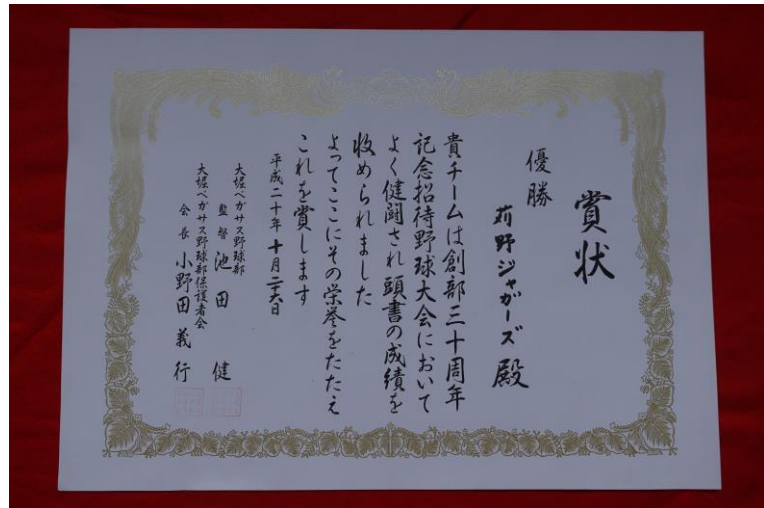 賞状
優勝
苅野ジャガーズ殿
貴チームは創部三十周年
記念招待野球大会において
よく健闘され頭書の成績を
収められました
よってここにその栄誉をたたえ
これを賞します
平成二十年十月二十六日
大堀ペガサス野球部
監督 池田 健
大堀ペガサス野球部保護者会
会長 小野田義行